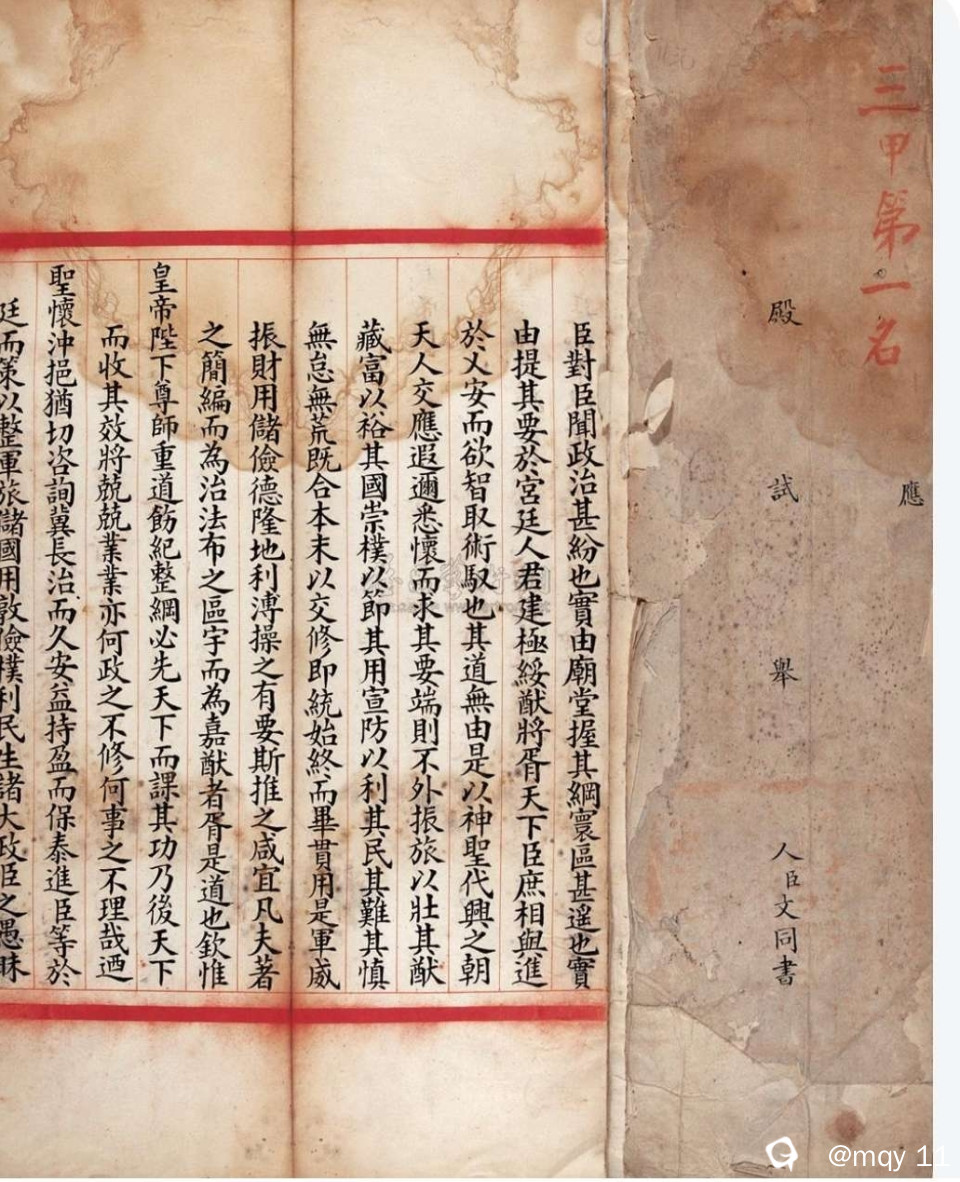 三甲第一名
應
殿試舉人臣文同書
臣對臣聞政治甚紛也實由廟堂握其綱寰區甚遥也實
由提其要於宮廷人君建極綏猷將胥天下臣庶相與進
於乂安而欲智取術馭也其道無由是以神聖代興之朝
天人交應遐邇悉懷而求其要端則不外振旅以壯其猷
藏富以裕其國崇樸以節其用宣防以利其民其難其慎
無怠無荒既合本末以交修即統始終而畢貫用是軍威
振財用儲儉德隆地利溥操之有要斯推之咸宜凡夫著
之簡編而為治法布之區宇而為嘉猷者胥是道也欽惟
皇帝陛下尊師重道飭紀整綱必先天下而課其功乃後天下
而收其效將兢兢業業亦何政之不修何事之不理哉迺
聖懷沖挹猶切咨詢冀長治而久安益持盈而保泰進臣等於
廷而策以整軍旅儲國用敦儉樸利民生諸大政臣之愚昧
@mqy 11